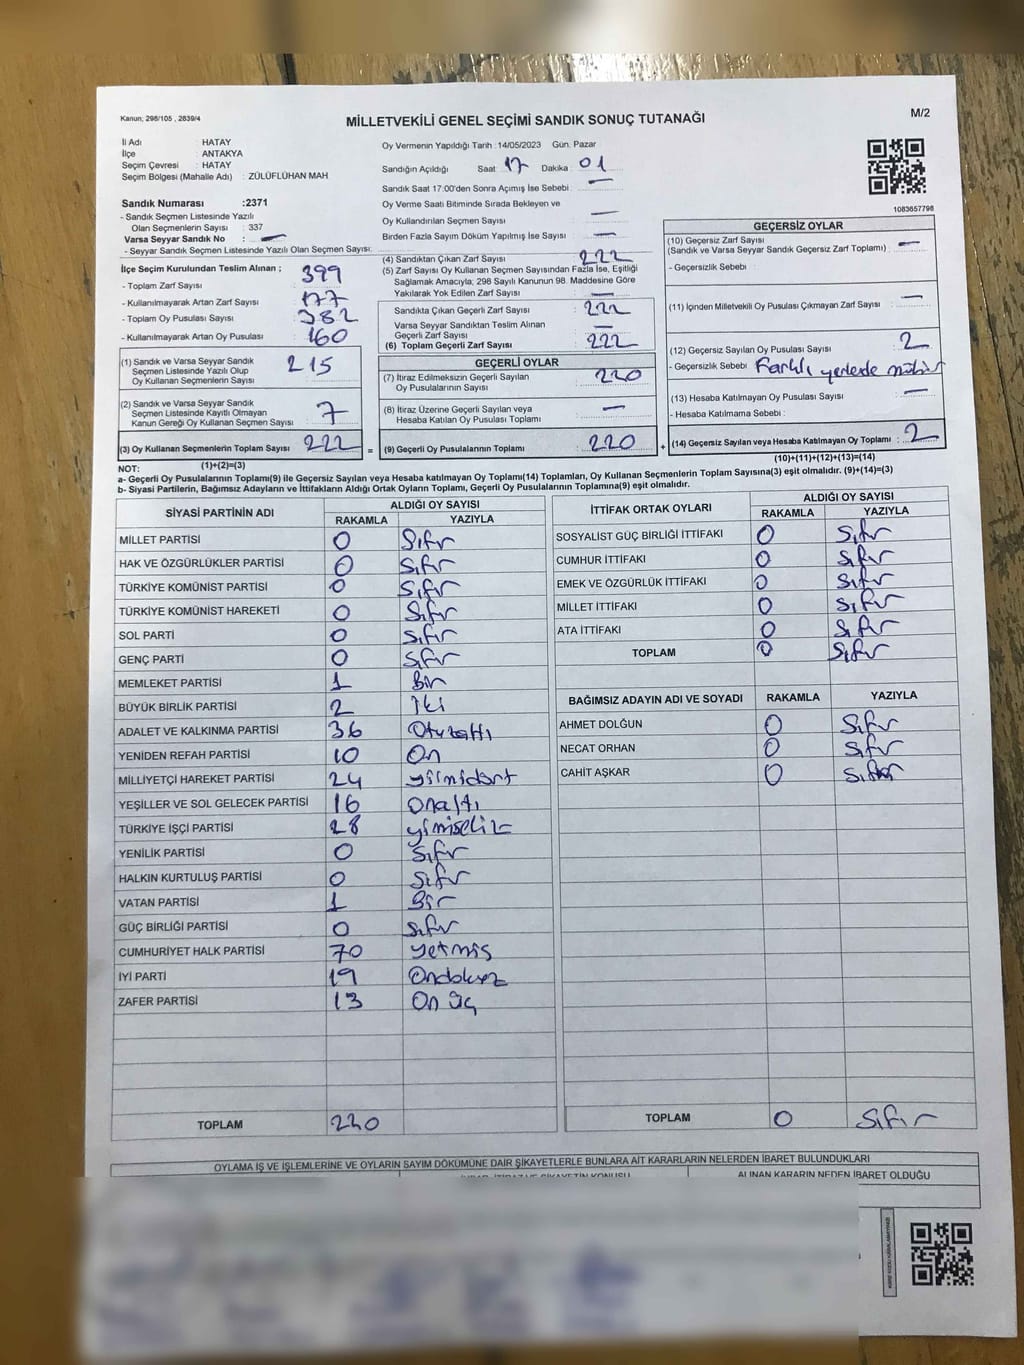 Kanun; 298/105 , 2839/4
M/2
MİLLETVEKİLİ GENEL SEÇİMİ SANDIK SONUÇ TUTANAĞI
İl Adı : HATAY
İlçe : ANTAKYA
Seçim Çevresi : HATAY
Seçim Bölgesi (Mahalle Adı) : ZÜLÜFLÜHAN MAH
Sandık Numarası :2371
- Sandık Seçmen Listesinde Yazılı
Olan Seçmenlerin Sayısı : 337
Varsa Seyyar Sandık No : —
- Seyyar Sandık Seçmen Listesinde Yazılı Olan Seçmen Sayısı:
İlçe Seçim Kurulundan Teslim Alınan ;
- Toplam Zarf Sayısı : 399
- Kullanılmayarak Artan Zarf Sayısı : 177
- Toplam Oy Pusulası Sayısı : 382
- Kullanılmayarak Artan Oy Pusulası : 160
(1) Sandık ve Varsa Seyyar Sandık
Seçmen Listesinde Yazılı Olup
Oy Kullanan Seçmenlerin Sayısı : 215
(2) Sandık ve Varsa Seyyar Sandık
Seçmen Listesinde Kayıtlı Olmayan
Kanun Gereği Oy Kullanan Seçmen Sayısı : 7
(3) Oy Kullanan Seçmenlerin Toplam Sayısı : 222 =
(1)+(2)=(3)
Oy Vermenin Yapıldığı Tarih :14/05/2023 Gün: Pazar
Sandığın Açıldığı Saat : 17 Dakika : 01
Sandık Saat 17:00'den Sonra Açımış İse Sebebi : —
Oy Verme Saati Bitiminde Sırada Bekleyen ve
Oy Kullandırılan Seçmen Sayısı : —
Birden Fazla Sayım Döküm Yapılmış İse Sayısı : —
(4) Sandıktan Çıkan Zarf Sayısı : 222
(5) Zarf Sayısı Oy Kullanan Seçmen Sayısından Fazla İse, Eşitliği
Sağlamak Amacıyla; 298 Sayılı Kanunun 98. Maddesine Göre
Yakılarak Yok Edilen Zarf Sayısı : —
Sandıkta Çıkan Geçerli Zarf Sayısı : 222
Varsa Seyyar Sandıktan Teslim Alınan
Geçerli Zarf Sayısı : —
(6) Toplam Geçerli Zarf Sayısı : 222
GEÇERLİ OYLAR
(7) İtiraz Edilmeksizin Geçerli Sayılan
Oy Pusulalarının Sayısı : 220
(8) İtiraz Üzerine Geçerli Sayılan veya
Hesaba Katılan Oy Pusulası Toplamı : —
(9) Geçerli Oy Pusulalarının Toplamı : 220 +
1083657798
GEÇERSİZ OYLAR
(10) Geçersiz Zarf Sayısı : —
(Sandık ve Varsa Seyyar Sandık Geçersiz Zarf Toplamı)
- Geçersizlik Sebebi :
(11) İçinden Milletvekili Oy Pusulası Çıkmayan Zarf Sayısı : —
(12) Geçersiz Sayılan Oy Pusulası Sayısı : 2
- Geçersizlik Sebebi : Farklı yerlerde mühür
(13) Hesaba Katılmayan Oy Pusulası Sayısı : —
- Hesaba Katılmama Sebebi :
(14) Geçersiz Sayılan veya Hesaba Katılmayan Oy Toplamı : 2
(10)+(11)+(12)+(13)=(14)
NOT:
a- Geçerli Oy Pusulalarının Toplamı(9) ile Geçersiz Sayılan veya Hesaba katılmayan Oy Toplamı(14) Toplamları, Oy Kullanan Seçmenlerin Toplam Sayısına(3) eşit olmalıdır. (9)+(14)=(3)
b- Siyasi Partilerin, Bağımsız Adayların ve İttifakların Aldığı Ortak Oyların Toplamı, Geçerli Oy Pusulalarının Toplamına(9) eşit olmalıdır.
SİYASİ PARTİNİN ADI ALDIĞI OY SAYISI
RAKAMLA YAZIYLA
MİLLET PARTİSİ 0 Sıfır
HAK VE ÖZGÜRLÜKLER PARTİSİ 0 Sıfır
TÜRKİYE KOMÜNİST PARTİSİ 0 Sıfır
TÜRKİYE KOMÜNİST HAREKETİ 0 Sıfır
SOL PARTİ 0 Sıfır
GENÇ PARTİ 0 Sıfır
MEMLEKET PARTİSİ 1 Bir
BÜYÜK BİRLİK PARTİSİ 2 İki
ADALET VE KALKINMA PARTİSİ 36 Otuzaltı
YENİDEN REFAH PARTİSİ 10 On
MİLLİYETÇİ HAREKET PARTİSİ 24 yirmidört
YEŞİLLER VE SOL GELECEK PARTİSİ 16 Onaltı
TÜRKİYE İŞÇİ PARTİSİ 28 yirmisekiz
YENİLİK PARTİSİ 0 Sıfır
HALKIN KURTULUŞ PARTİSİ 0 Sıfır
VATAN PARTİSİ 1 Bir
GÜÇ BİRLİĞİ PARTİSİ 0 Sıfır
CUMHURİYET HALK PARTİSİ 70 yetmiş
İYİ PARTİ 19 Ondokuz
ZAFER PARTİSİ 13 On üç
TOPLAM 220
İTTİFAK ORTAK OYLARI ALDIĞI OY SAYISI
RAKAMLA YAZIYLA
SOSYALİST GÜÇ BİRLİĞİ İTTİFAKI 0 Sıfır
CUMHUR İTTİFAKI 0 Sıfır
EMEK VE ÖZGÜRLÜK İTTİFAKI 0 Sıfır
MİLLET İTTİFAKI 0 Sıfır
ATA İTTİFAKI 0 Sıfır
TOPLAM 0 Sıfır
BAĞIMSIZ ADAYIN ADI VE SOYADI RAKAMLA YAZIYLA
AHMET DOLĞUN 0 Sıfır
NECAT ORHAN 0 Sıfır
CAHİT AŞKAR 0 Sıfır
TOPLAM 0 Sıfır
OYLAMA İŞ VE İŞLEMLERİNE VE OYLARIN SAYIM DÖKÜMÜNE DAİR ŞİKAYETLERLE BUNLARA AİT KARARLARIN NELERDEN İBARET BULUNDUKLARI
ALINAN KARARIN NEDEN İBARET OLDUĞU